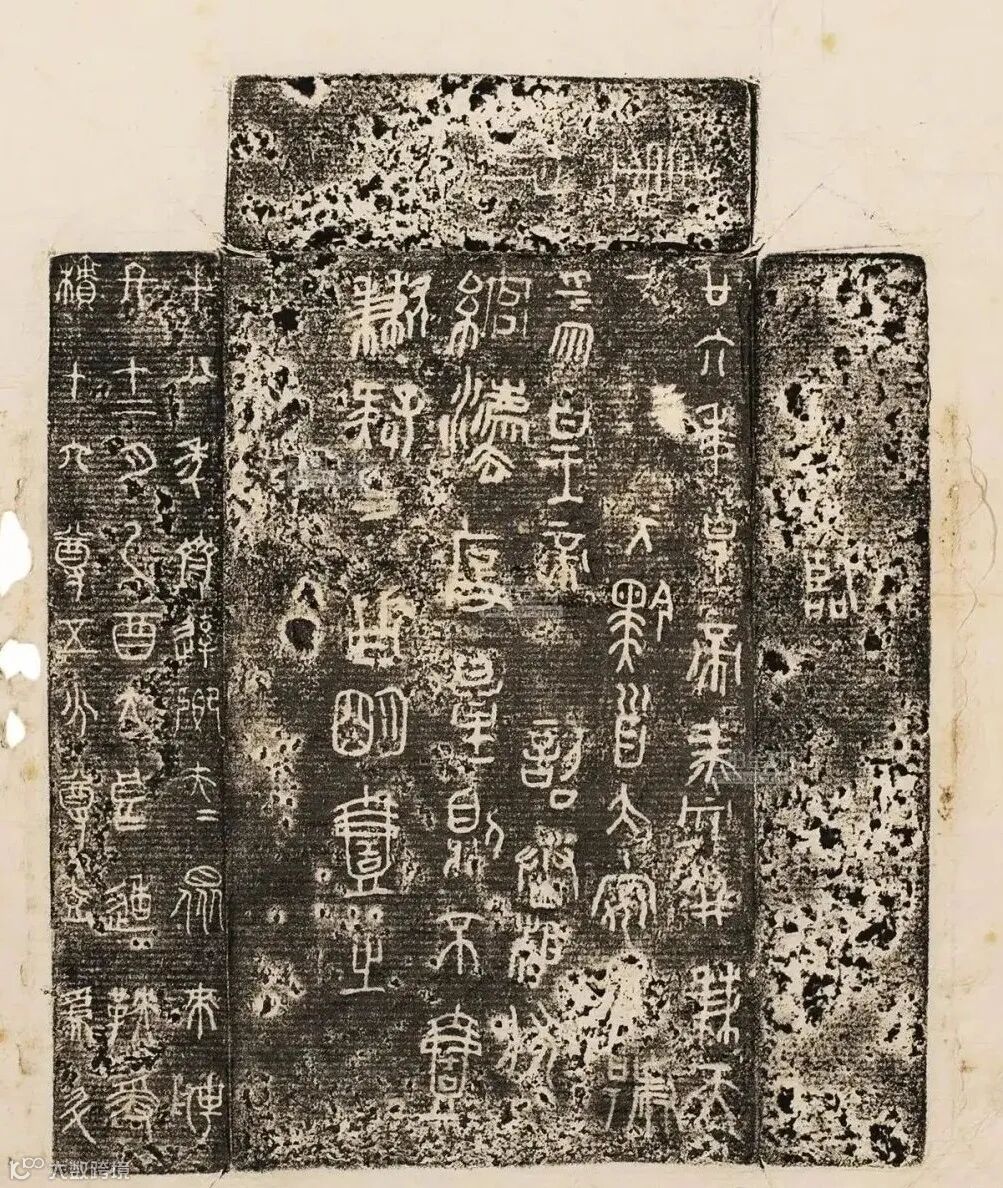 重泉
臨
廿六年皇帝盡并兼天
下諸侯黔首大安立號
爲皇帝乃詔丞相狀
綰灋度量則不壹
歉疑者皆明壹之
十八年齊遣卿夫=衆來聘
冬十二月乙酉大良造鞅爰
積十六尊五分尊壹爲升
大数跨境